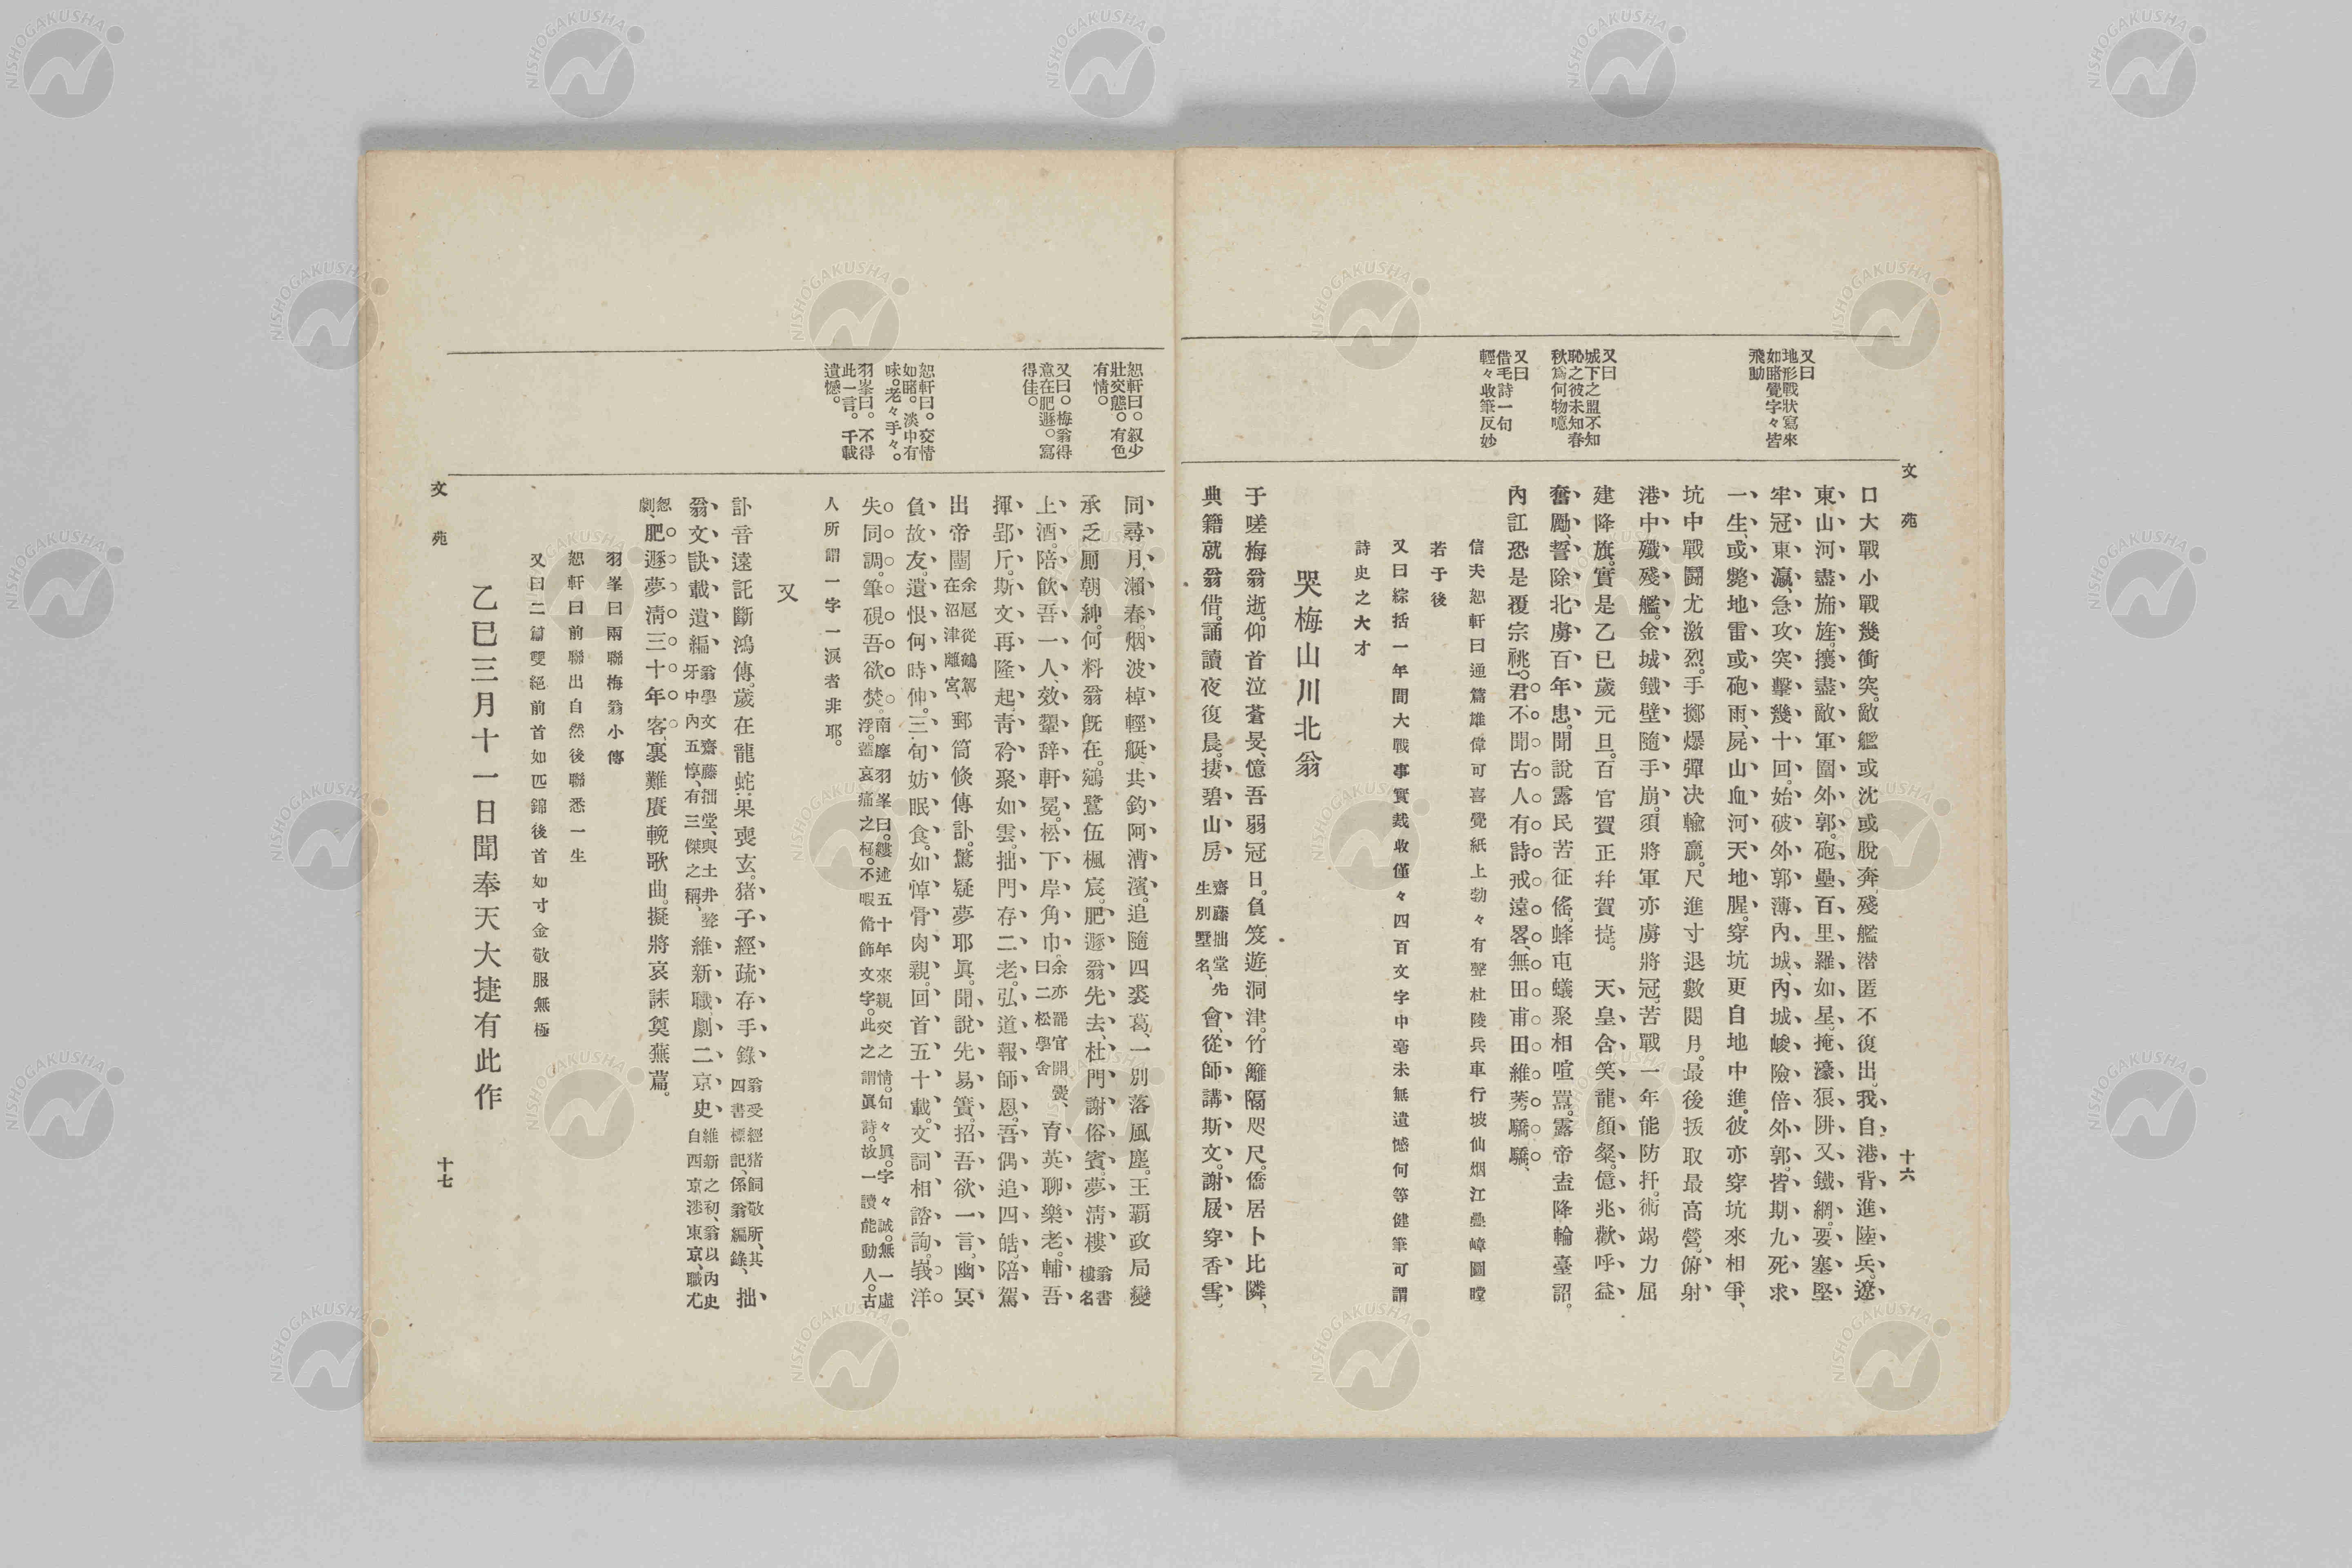 文苑
十六
又曰
地形戰狀寫來
如睹覺字々皆
飛動
又曰
城下之盟不知
恥之彼未知春
秋爲何物噫
又曰
借毛詩一句
輕々收筆反妙
口大戰小戰幾衝突。敵艦或沈或脫奔、殘艦潜匿不復出。我自港背進陸兵。遼
東山河盡旆旌。攘盡敵軍圍外郭。砲壘百里羅如星。掩濠狠阱又鐵網。要塞堅
牢冠東瀛、急攻突擊幾十回。始破外郭薄內城、內城峻險倍外郭。皆期九死求
一生、或斃地雷或砲雨、屍山血河天地腥。穿坑更自地中進。彼亦穿坑來相爭、
坑中戰鬪尤激烈。手擲爆彈决輸贏。尺進寸退數閱月。最後拔取最高營。俯射
港中殲殘艦。金城鐵壁隨手崩。須將軍亦虜將冠。苦戰一年能防扞。術竭力屈
建降旗。實是乙巳歲元旦。百官賀正幷賀捷。 天皇含笑龍顏粲。億兆歡呼益
奮勵、誓除北虜百年患。聞說露民苦征徭、蜂屯蟻聚相喧囂。露帝盍降輪臺詔。
內訌恐是覆宗祧』。君不聞古人有詩戒遠畧、無田甫田維莠驕驕、
信夫恕軒曰通篇雄偉可喜覺紙上勃々有聲杜陵兵車行坡仙烟江疊嶂圖瞠
若于後
又曰綜括一年間大戰事實裁收僅々四百文字中毫未無遺憾何等健筆可謂
詩史之大才
哭梅山川北翁
于嗟梅翁逝。仰首泣蒼旻、憶吾弱冠日。負笈遊洞津。竹籬隔咫尺。僑居卜比隣、
典籍就翁借。誦讀夜復晨。捿碧山房、齋藤拙堂先生別墅名、會、從師講斯文。謝屐穿香雪、
恕軒曰。叙少
壯交態。有色
有情。
又曰。梅翁得
意在肥遯。寫
得佳。
恕軒曰。交情
如睹。淡中有
味。老々手々。
羽峯曰。不得
此一言。千載
遺憾。
同尋月瀨春。烟波棹輕艇、共釣阿漕濱。追隨四裘葛、一別落風塵。王覇政局變
承乏厠朝紳。何料翁旣在。鵷鷺伍楓宸。肥遯翁先去、杜門謝俗賓。夢淸樓翁書樓名
上酒。陪飮吾一人、效颦辞軒冕。松下岸角巾、余亦罷官開黌、曰二松學舍育英聊樂老。輔吾
揮郢斤。斯文再隆起、靑衿聚如雲。拙門存二老。弘道報師恩。吾偶追四皓。陪駕
出帝闉余扈從鶴駕在沼津離宮、郵筒倐傳訃。驚疑夢耶眞。聞說先易簀。招吾欲一言。幽冥
負故友。遺恨何時伸。三旬妨眠食。如悼骨肉親。回首五十載。文詞相諮詢。峩洋
失同調。筆硯吾欲焚。南摩羽峯曰。縷述五十年來親交之情。句々眞。字々誠。無一虛浮。蓋哀痛之極。不暇脩飾文字。此之謂眞詩。故一讀能動人。古
人所謂一字一淚者非耶。
又
訃音遠託斷鴻傳。歲在龍蛇果喪玄。猪子經疏存手錄翁受經猪飼敬所、其四書標記、係翁編錄、拙
翁文訣載遺編、翁學文齋藤拙堂、與土井𦎟牙中內五惇、有三傑之稱、維新職劇二京史、維新之初、翁以內史自西京涉東京、職尤
劇、肥遯夢淸三十年客、裏難賡輓歌曲。擬將哀誄奠蕪篇。
羽峯曰兩聯梅翁小傳
恕軒曰前聯出自然後聯悉一生
又曰二篇雙絕前首如匹錦後首如寸金敬服無極
乙巳三月十一日聞奉天大捷有此作
文苑
十七